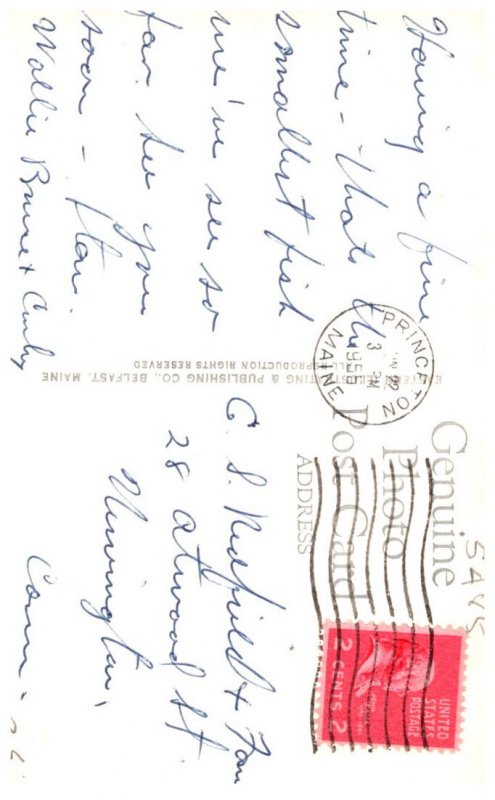 Having a fine
time - thats the
smallest fish
we've see so
far. See you
soon - Flori
Wallie Bruce & Cindy
EASTERN ILLUSTRATING & PUBLISHING CO., BELFAST, MAINE
ALL REPRODUCTION RIGHTS RESERVED
PRINCETON
MAINE
3 PM
1956
Genuine
Photo
Post Card
ADDRESS
UNITED
STATES
POSTAGE
2 CENTS 2
C. S. Redfield & Fam
28 Atwood St.
Newington,
Conn.